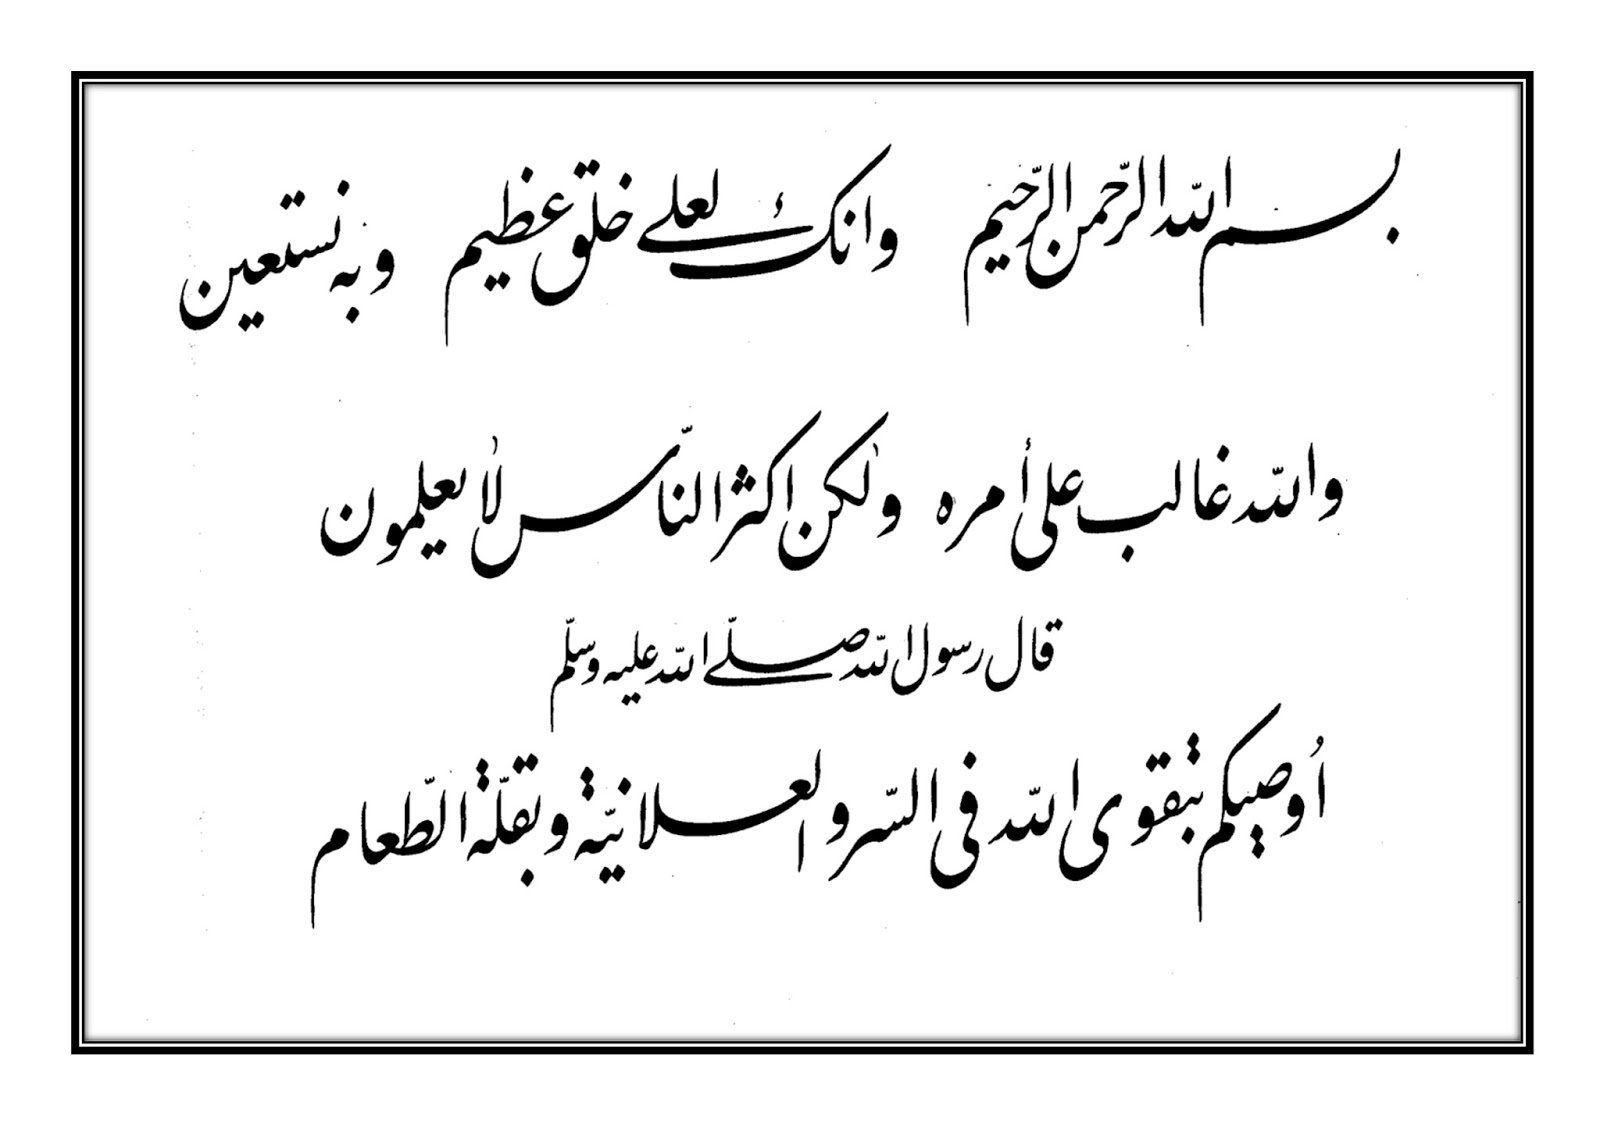 بسم الله الرّحمن الرّحيم وانك لعلى خلق عظيم وبه نستعين
والله غالب على أمره ولكن اكثر النّاس لا يعلمون
قال رسول الله صلّى الله عليه وسلّم
أوصيكم بتقوى الله فى السّر والعلانيّة وبقلّة الطّعام